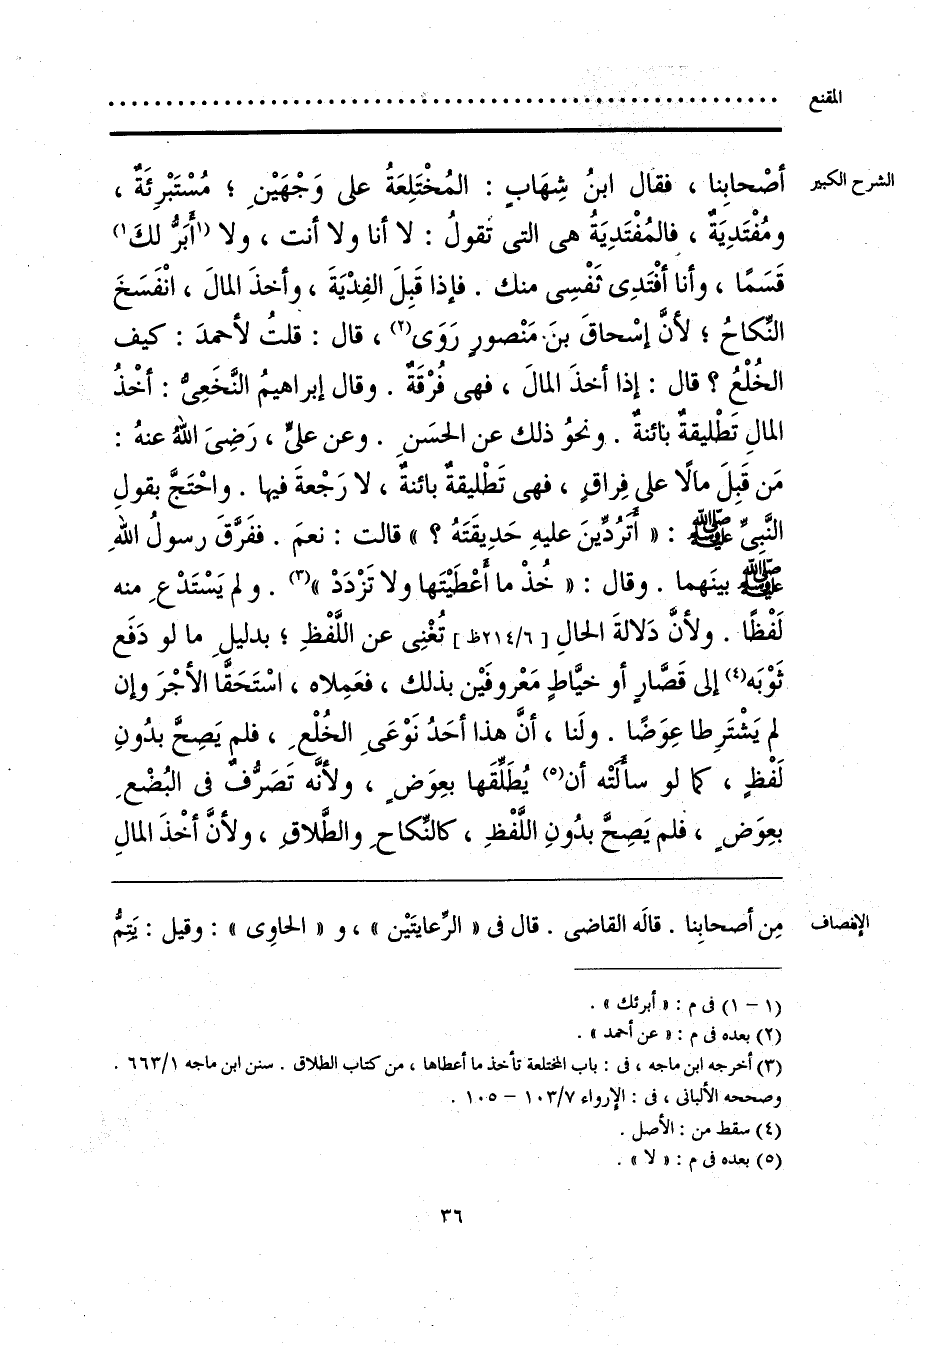 المقنع ................................................................
الشرح الكبير أصْحابِنا ، فقال ابنُ شِهَابٍ : المُخْتَلِعَةُ على وَجْهَيْنِ ؛ مُسْتَبْرِئَةٌ ،
ومُفْتَدِيَةٌ ، فالمُفْتَدِيَةُ هى التى تَقولُ : لا أنا ولا أنت ، ولا (١أَبَرُّ لكَ١)
قَسَمًا ، وأنا أفْتَدِى نَفْسِى منك . فإذا قَبِلَ الفِدْيَةَ ، وأخذَ المالَ ، انْفَسَخَ
النِّكاحُ ؛ لأنَّ إسْحاقَ بنَ مَنْصورٍ رَوَى(٢) ، قال : قلتُ لأحمدَ : كيف
الخُلْعُ ؟ قال : إذا أخذَ المالَ ، فهى فُرْقَةٌ . وقال إبراهيمُ النَّخَعِىُّ : أخْذُ
المالِ تَطْليقةٌ بائنةٌ . ونحوُ ذلك عن الحَسَنِ . وعن علىٍّ ، رَضِىَ اللهُ عنهُ :
مَن قَبِلَ مالًا على فِراقٍ ، فهى تَطْليقةٌ بائنةٌ ، لا رَجْعةَ فيها . واحْتَجَّ بقولِ
النَّبِىِّ ﷺ : « أَتَرُدِّينَ عليهِ حَدِيقَتَهُ ؟ » قالت : نعمَ . ففَرَّقَ رسولُ اللهِ
ﷺ بينَهما . وقال : « خُذْ ما أَعْطَيْتَها ولا تَزْدَدْ »(٣) . ولم يَسْتَدْعِ منه
لَفْظًا . ولأنَّ دَلالةَ الحالِ [ ٢١٤/٦ظ ] تُغْنِى عن اللَّفْظِ ؛ بدليلِ ما لو دَفَع
ثَوْبَه(٤) إلى قَصَّارٍ أو خيَّاطٍ مَعْروفَيْن بذلك ، فعَمِلاه ، اسْتَحَقَّا الأجْرَ وإن
لم يَشْتَرِطا عِوَضًا . ولَنا ، أنَّ هذا أحَدُ نَوْعَىِ الخُلْعِ ، فلم يَصِحَّ بدُونِ
لَفْظٍ ، كما لو سألَتْه أن(٥) يُطَلِّقَها بعِوَضٍ ، ولأنَّه تَصَرُّفٌ فى البُضْعِ
بعِوَضٍ ، فلم يَصِحَّ بدُونِ اللَّفْظِ ، كالنِّكاحِ والطَّلاقِ ، ولأنَّ أخْذَ المالِ
الإنصاف مِن أصحابِنا . قالَه القاضى . قال فى « الرِّعايتَيْن » ، و « الحاوِى » : وقيل : يَتِمُّ
(١ – ١) فى م : « أبرئك » .
(٢) بعده فى م : « عن أحمد » .
(٣) أخرجه ابن ماجه ، فى : باب المختلعة تأخذ ما أعطاها ، من كتاب الطلاق . سنن ابن ماجه ٦٦٣/١ .
وصححه الألبانى ، فى : الإرواء ١٠٣/٧ – ١٠٥ .
(٤) سقط من : الأصل .
(٥) بعده فى م : « لا » .
٣٦